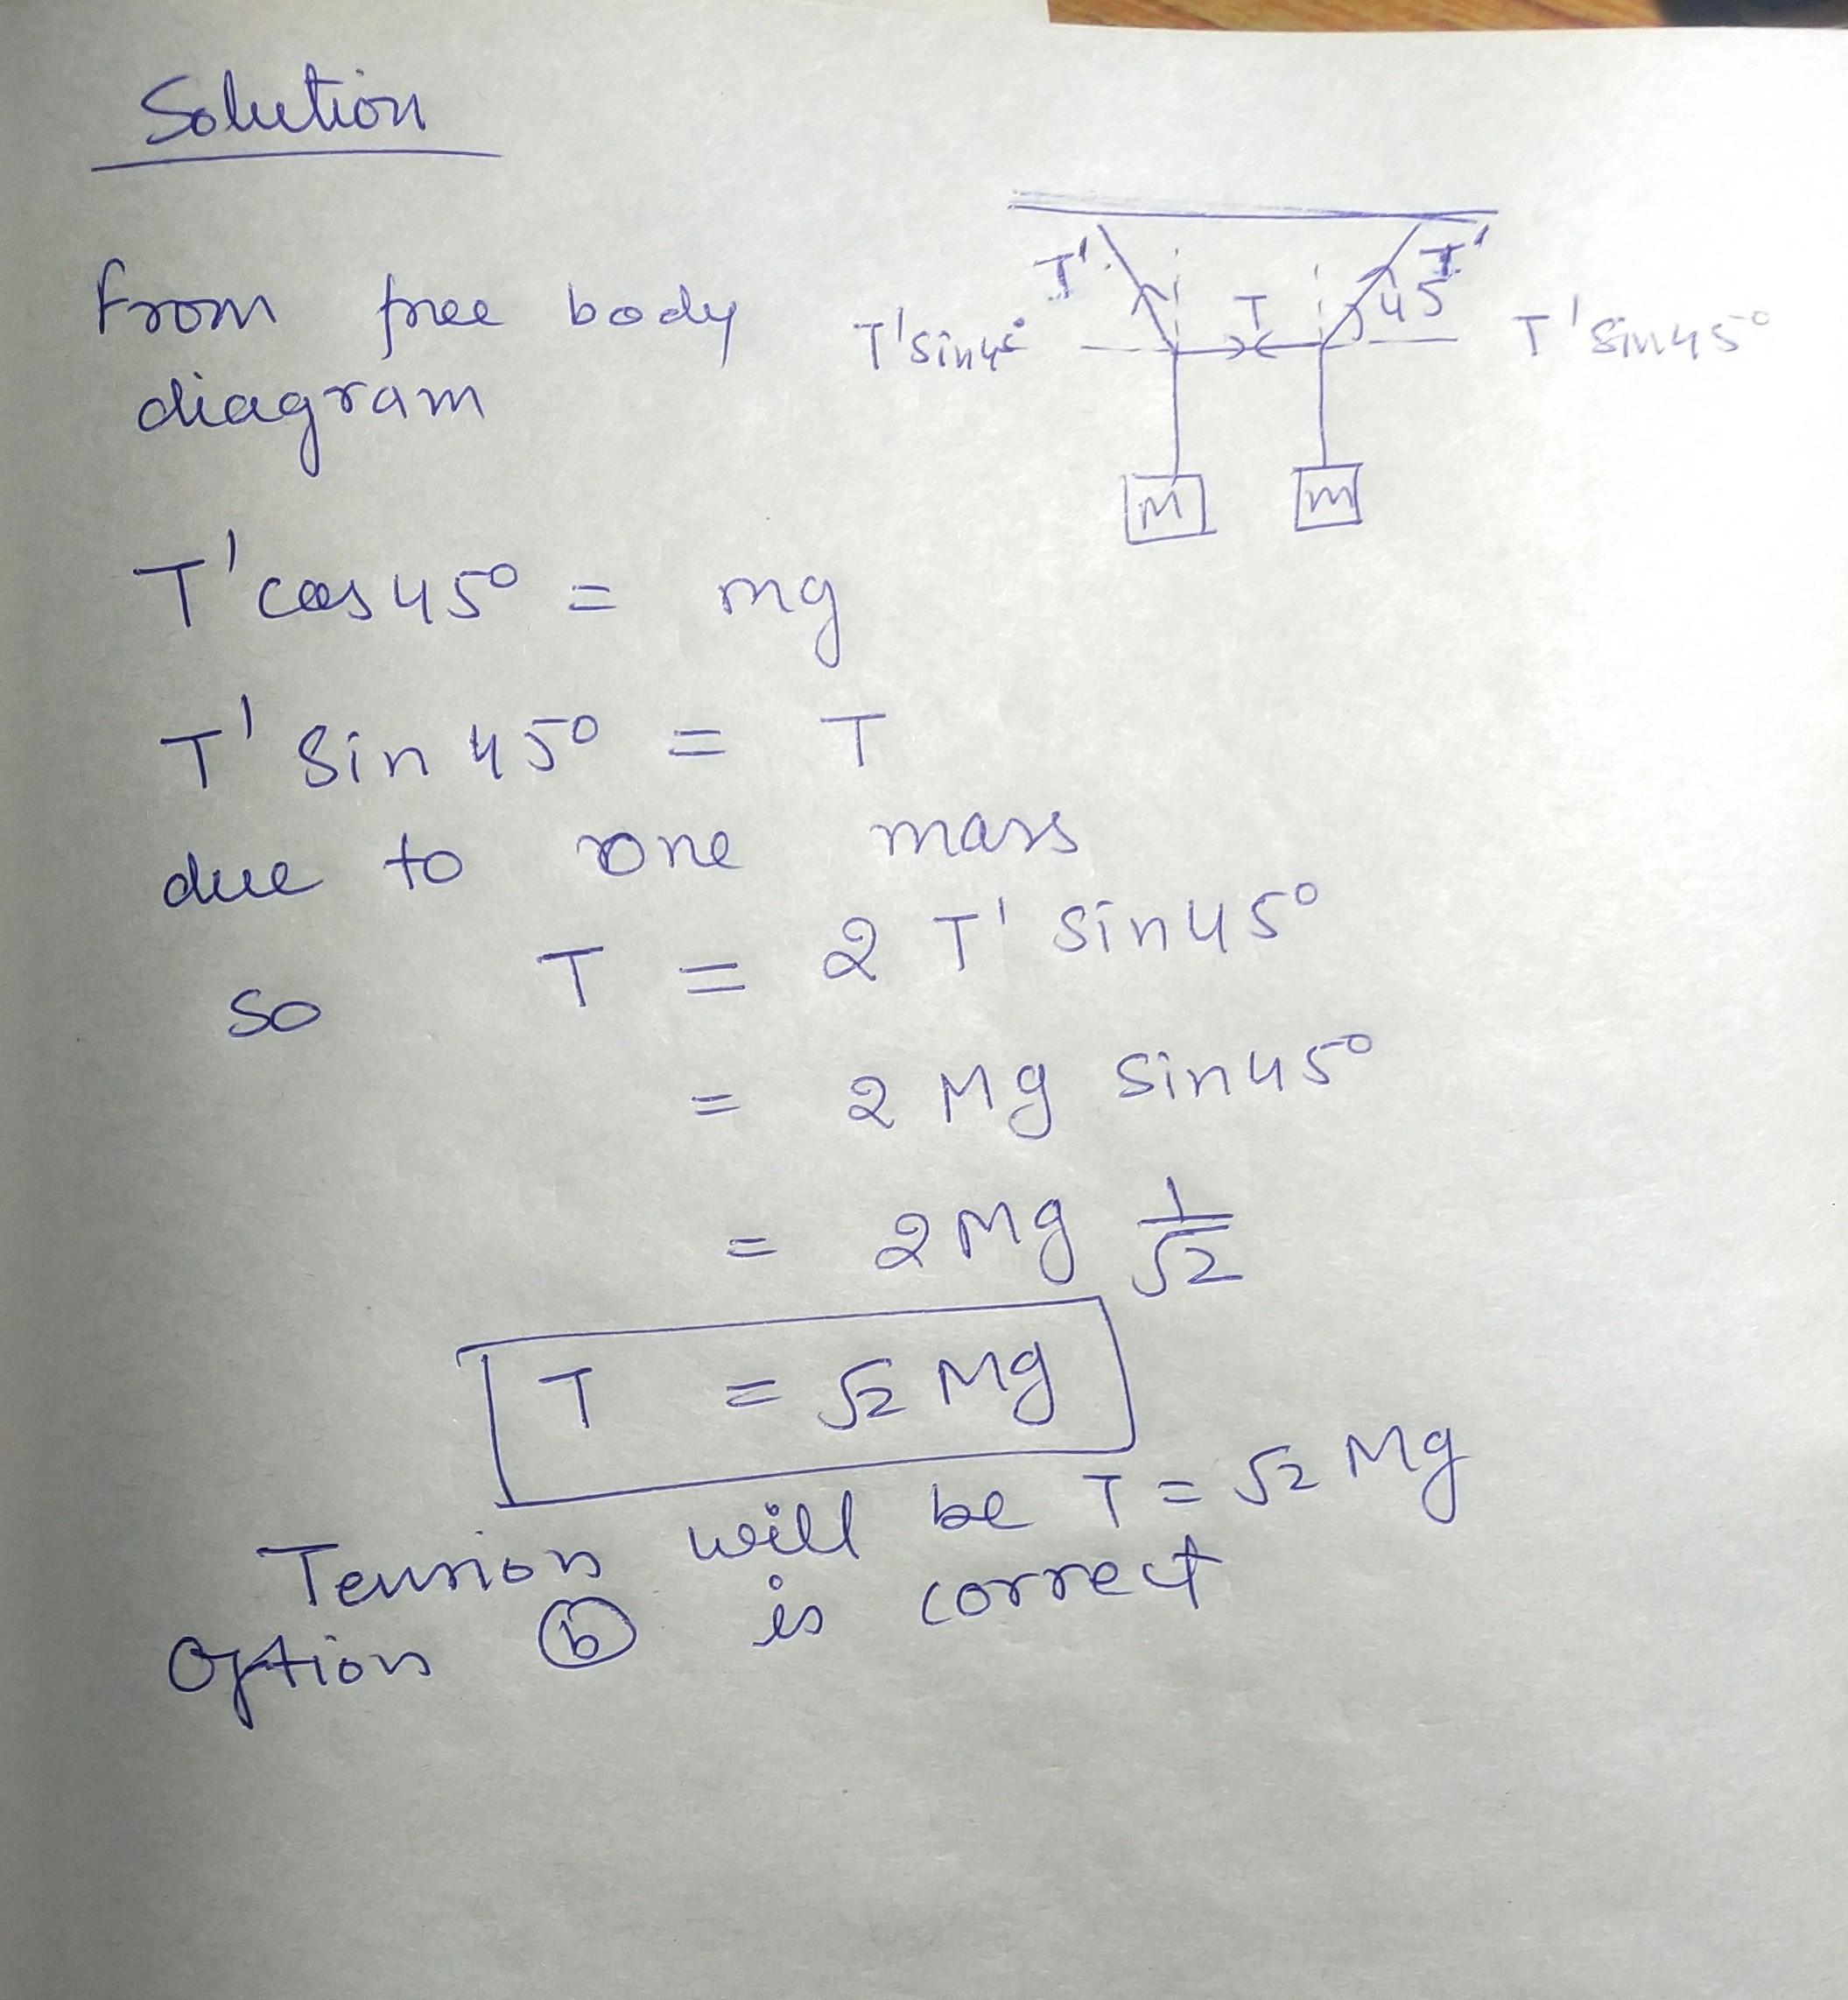 Solution
From free body
diagram
T'
T'
T
45
T'sin45°
T'sin45°
M
m
T'cos45° = mg
T' sin 45° = T
due to one mass
so T = 2 T' sin45°
= 2 Mg sin45°
= 2Mg 1/√2
T = √2 Mg
Tension will be T = √2 Mg
Option (b) is correct